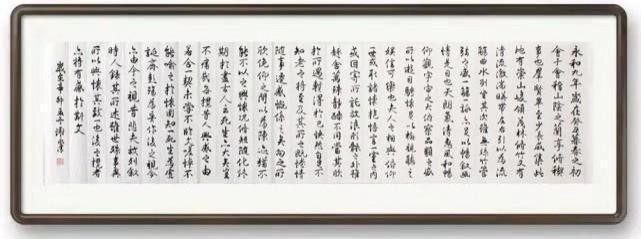 永和九年歲在癸丑暮春之初
會于會稽山陰之蘭亭脩稧
事也羣賢畢至少長咸集此
地有崇山峻領茂林脩竹又有
清流激湍暎帶左右引以為流
觴曲水列坐其次雖無絲竹管
弦之盛一觴一詠亦足以暢敘幽
情是日也天朗氣清惠風和暢
仰觀宇宙之大俯察品類之盛
所以遊目騁懷足以極視聽之
娛信可樂也夫人之相與俯仰
一世或取諸懷抱悟言一室之內
或因寄所託放浪形骸之外雖
趣舍萬殊靜躁不同當其欣
於所遇暫得於己快然自足不
知老之將至及其所之既惓情
隨事遷感慨係之矣向之所
欣俛仰之間以為陳迹猶不
能不以之興懷況脩短隨化終
期於盡古人云死生亦大矣豈
不痛哉每攬昔人興感之由
若合一契未嘗不臨文嗟悼不
能喻之於懷固知一死生為虛
誕齊彭殤為妄作後之視今
亦由今之視昔悲夫故列敘
時人錄其所述雖世殊事異
所以興懷其致一也後之攬者
亦將有感於斯文